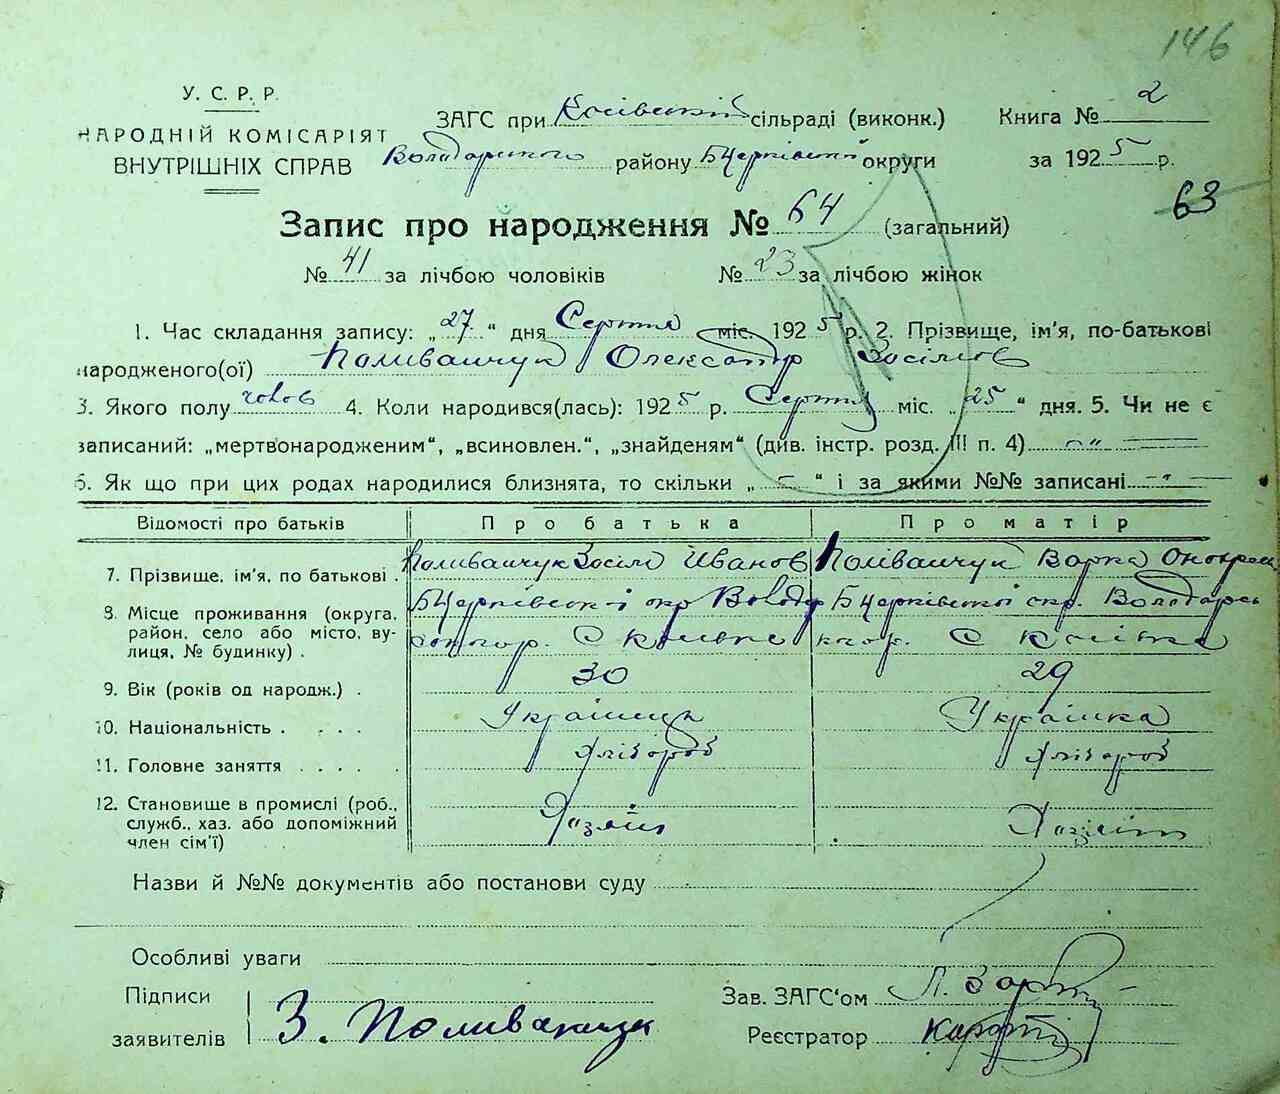 146
У. С. Р. Р.
НАРОДНІЙ КОМІСАРІЯТ
ВНУТРІШНІХ СПРАВ
ЗАГС при Косівській сільраді (виконк.) Книга № 2
Володарського району БЦерківської округи за 1925 р.
63
Запис про народження № 64 (загальний)
№ 41 за лічбою чоловіків № 23 за лічбою жінок
1. Час складання запису: „27“ дня Серпня міс. 1925 р. 2. Прізвище, ім'я, по-батькові
народженого(ої) Поливанчук Олександр Зосімов
3. Якого полу чолов 4. Коли народився(лась): 1925 р. Серпня міс. „25“ дня. 5. Чи не є
записаний: „мертвонародженим“, „всиновлен.“, „знайденям“ (див. інстр. розд. III п. 4) —„—
6. Як що при цих родах народилися близнята, то скільки „ — “ і за якими №№ записані —„—
Відомості про батьків Про батька Про матір
7. Прізвище, ім'я, по батькові . Поливанчук Зосім Иванов Поліванчук Варка
8. Місце проживання (округа, район, село або місто, вулиця, № будинку) . БЦерківської окр Володар с БЦерківської окр. Володарсь с
9. Вік (років од народж.) . 30 29
10. Національність . . . . Українець Українка
11. Головне заняття . . . . . Хлібороб Хлібороб
12. Становище в промислі (роб., служб., хаз. або допоміжний член сім'ї) Хазяїн
Назви й №№ документів або постанови суду
Особливі уваги
Підписи
заявителів З. Поливанчук
Зав. ЗАГС'ом
Реєстратор